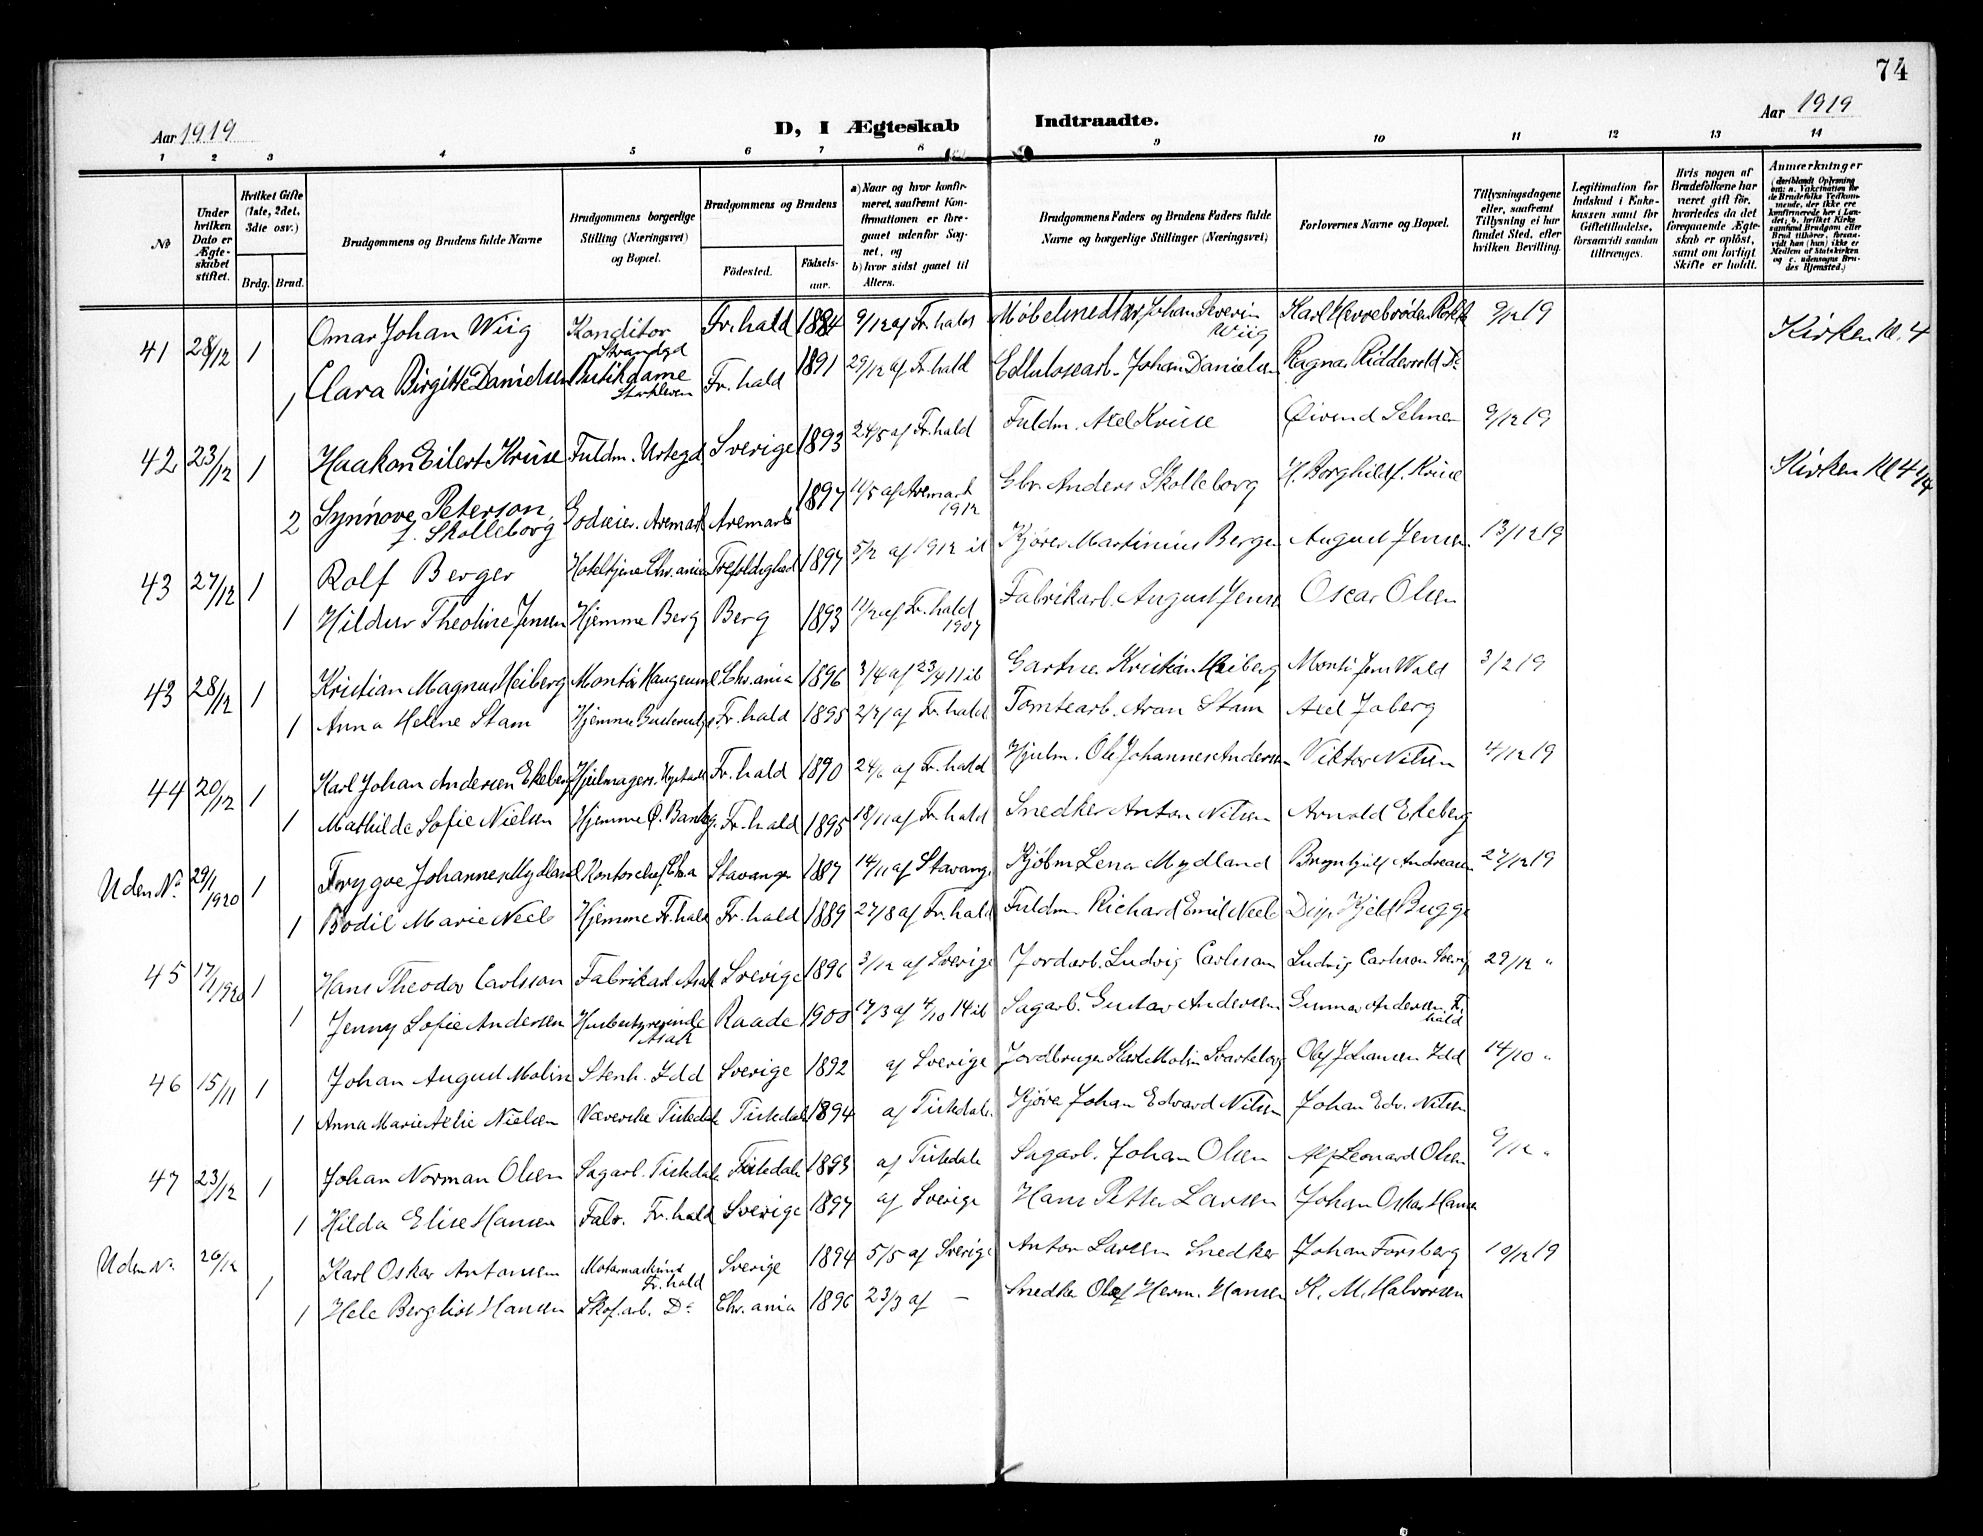 74
Aar 1919
D, I Ægteskab Indtraadte.
Aar 1919
1 2 3 4 5 6 7 8 9 10 11 12 13 14
№
Under hvilken Dato er Ægteskabet stiftet.
Hvilket Gifte (1ste, 2det, 3die osv.)
Brdg. Brud.
Brudgommens og Brudens fulde Navne
Brudgommens borgerlige Stilling (Næringsvei) og Bopæl.
Brudgommens og Brudens
Födested.
Födselsaar.
a) Naar og hvor konfirmeret, saafremt Konfirmationen er foregaaet udenfor Sognet, og
b) hvor sidst gaaet til Alters.
Brudgommens Faders og Brudens Faders fulde Navne og borgerlige Stillinger (Næringsvei)
Forlovernes Navne og Bopæl.
Tillysningsdagene eller, saafremt Tillysning ei har fundet Sted, efter hvilken Bevilling.
Legitimation for Indskud i Enkekassen samt for Giftetilladelse, forsaavidt saadan tiltrænges.
Hvis nogen af Brudefolkene har været gift før, hvorledes da det foregaaende Ægteskab er opløst, samt om lovligt Skifte er holdt.
Anmærkninger
(deriblandt Oplysning om: a. Vakcination for de Brudefolks Vedkommende, der ikke ere konfirmerede her i Landet; b. hvilket Kirkesamfund Brudgom eller Brud tilhører, forsaavidt han (hun) ikke er Medlem af Statskirken og c. udensogns Brudes Hjemsted.)
41 28/12 1 Omar Johan Wiig Konditor Strandgd Fr.hald 1884 9/12 af Fr.hald Møbelsnedker Johan Severin Wiig Karl Herrebrøden 9/12 19 Kirken Kl. 4
1 Clara Birgitte Danielsen Butikdame Fr.hald 1891 29/12 af Fr.hald Cellulosearb. Johan Danielsen Ragnar Riddervold Do
42 23/12 1 Haakon Eilert Kruse Fuldm. Urtegd Sverige 1893 24/5 af Fr.hald Fuldm. Axel Kruse Øivind Selmer 9/12 19 Kirken Kl 4 1/4
2 Synnøve Peterson f. Skolleborg Godseier. Aremark Aremark 1897 11/5 af Aremark 1912 Gbr. Anders Skolleborg H. Borghild f. Kruse
43 27/12 1 Rolf Berger Chr.ania Trefoldighed 1897 5/2 af 1912 Kjører Martinius Berger August Jensen 13/12 19
1 Hildur Theoline Jensen Hjemme Berg Berg 1893 11/2 af Fr.hald 1907 Fabrikarb. August Jensen Oscar Olsen
43 28/12 1 Kristian Magnus Heiberg Montør Haugesund Chr.ania 1896 3/4 af 23/4 11 Gartner Kristian Heiberg Montør Jens Wold 3/2 19
1 Anna Helene Stam Hjemme Fr.hald 1895 2/31 af Fr.hald Tomtearb. Aron Stam Axel Joberg
44 20/12 1 Karl Johan Andersen Ekeberg Hjulmagers. Fr.hald 1890 24/6 af Fr.hald Hjulm. Ole Johannes Andersen Viktor Nilsen 4/12 19
1 Mathilde Sofie Nielsen Hjemme Ø. Bankg. Fr.hald 1895 18/11 af Fr.hald Snedker Anton Nilsen Arnold Ekeberg
Uden No. 29/1 1920 1 Trygve Johannes Mydland Kontorchef Stavanger 1887 14/11 af Stavang. Kjøbm Lenar Mydland Brynhjulf Andreasen 27/12 19
1 Bodil Marie Neeb Hjemme Fr.hald Fr.hald 1889 27/8 af Fr.hald Fuldm. Richard Emil Neeb Disp. Kjeld Bugge
45 17/1 1920 1 Hans Theodor Carlsson Fabrikarb Asak Sverige 1896 3/12 af Sverige Jordarb. Ludvig Carlsson Ludvig Carlsson Sverig 29/12 "
1 Jenny Sofie Andersen Husbestyrerinde Asak Raade 1900 17/3 af 4/10 14 Sagarb. Gustav Andersen Gunnar Andersen Fr.hald
46 15/11 1 Johan August Molin Stenh. Idd Sverige 1892 af Sverige Jordbruger Karl Molin Svarteborg Olaf Johansen Idd 14/10 "
1 Anna Marie Nielsen Væverske Tistedal Tistedal 1894 af Tistedal. Kjøre Johan Edvard Nilsen Johan Edv. Nilsen
47 23/12 1 Johan Norman Olsen Sagarb. Tistedal Tistedal 1893 af Tistedal Sagarb. Johan Olsen Alf Leonard Olsen 9/12 "
1 Hilda Elise Hansen Fabr. Fr.hald Sverige 1897 af Sverige Hans Petter Larsen Johan Oskar Hansen
Uden No. 26/12 1 Karl Oskar Antonsen Motormaskinist Fr.hald Sverige 1894 5/5 af Sverige Anton Larsen Snedker Johan Forsberg 19/12 19
1 Hele Bergliot Hansen Skof.arb. Do Chr.ania 1896 23/3 af — Snedker Olaf Herm. Hansen K. M. Halvorsen